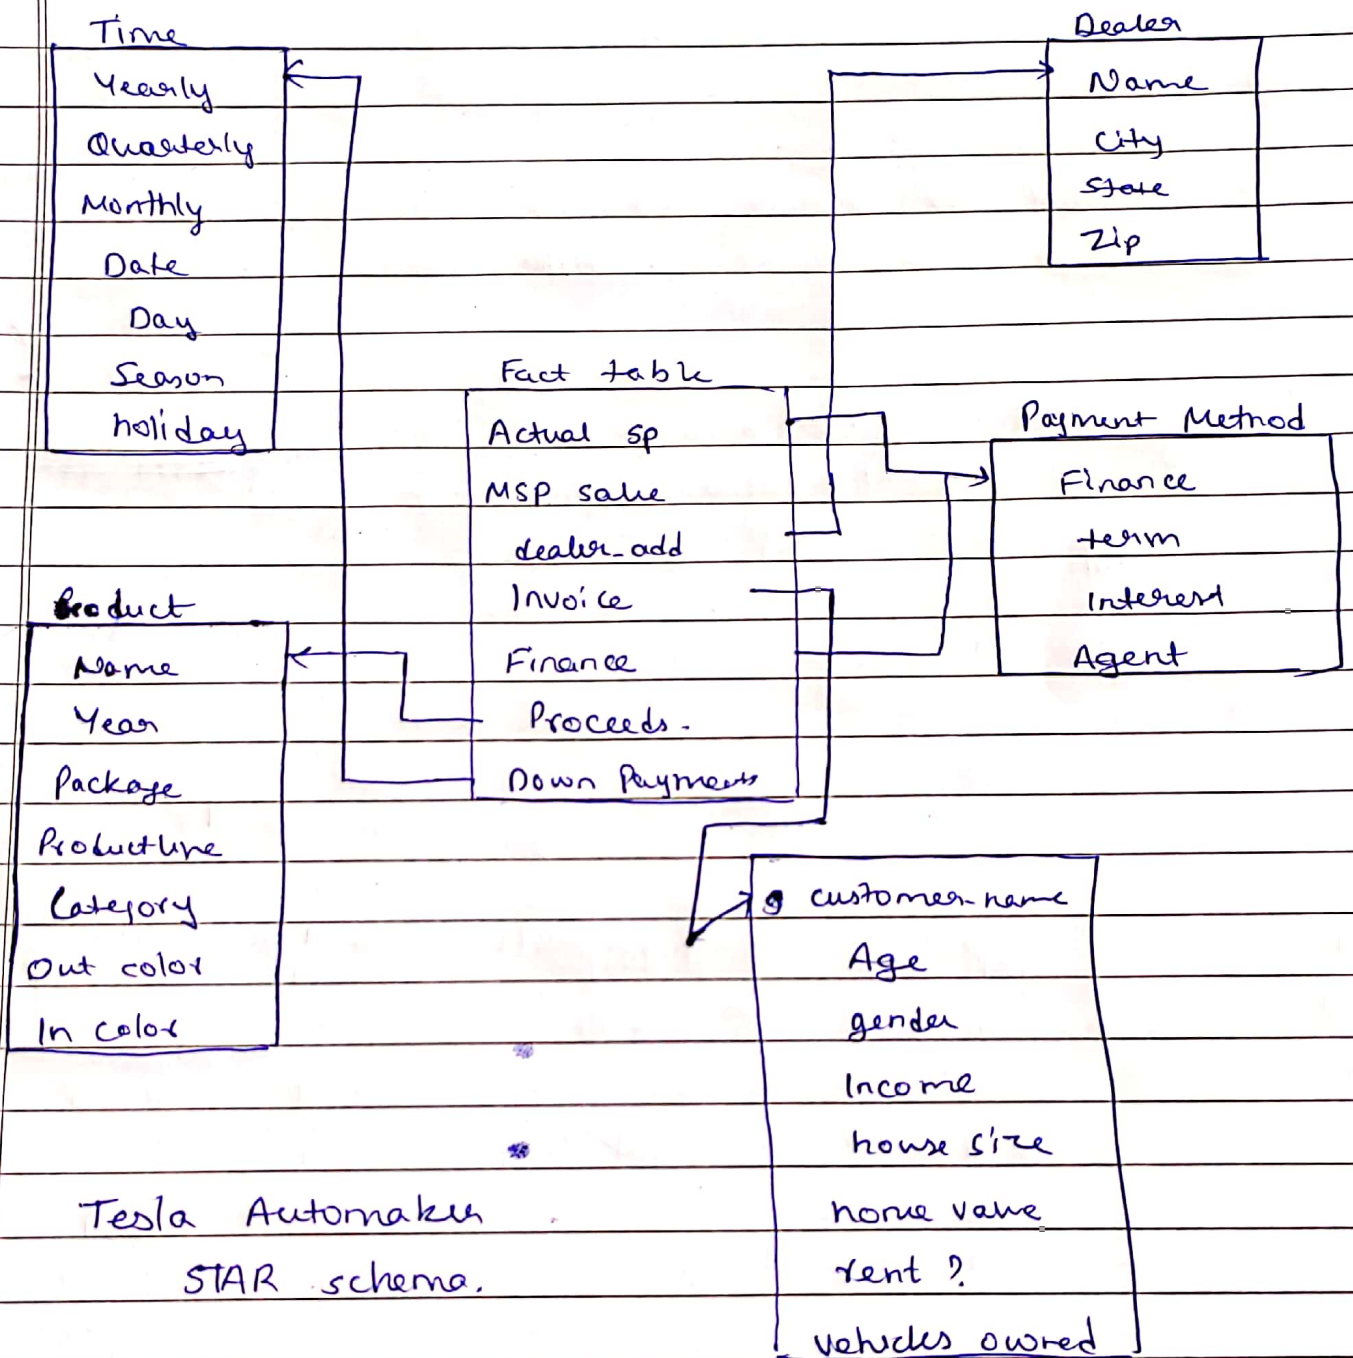 Time
Yearly
Quarterly
Monthly
Date
Day
Season
holiday
Dealer
Name
City
State
Zip
Fact table
Actual sp
MSP sale
dealer_add
Invoice
Finance
Proceeds.
Down Payments
Payment Method
Finance
term
Interest
Agent
Product
Name
Year
Package
Productline
Category
Out color
In color
customer-name
Age
gender
Income
house size
home value
rent ?
vehicles owned
Tesla Automaker
STAR schema.